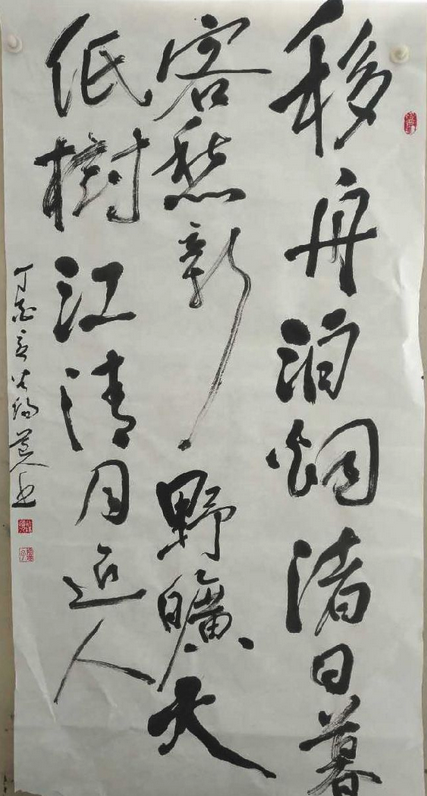 移舟泊烟渚日暮
客愁新野曠天
低樹江清月近人
丁酉道人书